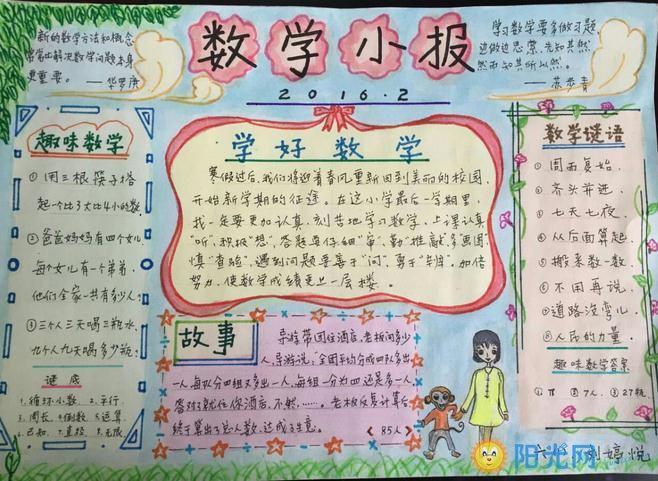 数学小报
2016.2
新的数学方法和概念
常常比解决数学问题本身
更重要。
——华罗庚
学习数学要多做习题
边做边思索，先知其然，
然后知其所以然。
——苏步青
趣味数学
①用三根筷子搭
起一个比3大比4小的数
②爸爸妈妈有四个女儿
每个女儿有一个弟弟，
他们全家一共有多少人？
③三个人三天喝三瓶水，
九个人九天喝多少瓶？
谜底
1.循环小数 2.平行
3.周长 4.倒数 5.运算
6.已知 7.直径 8.无限
学好数学
寒假过后，我们将迎着春风重新回到美丽的校园，
开始新学期的征途。在这小学最后一学期里，
我一定要更加认真、刻苦地学习数学，上课认真
"听"，积极"想"，答题要仔细"审"，
"验"，遇到问题要善于"问"，勇于，加倍
努力，使数学成绩更上一层楼。
故事
导游带团住酒店，老板问多少
人，导游说："全团平均分成四队多出
一人，每队分四组又多出一人，每组一分为四还是多一人
答对了就住你酒店，不然，……。老板反复计算后，
终于算出了总人数，达成了生意。
《85人》
数学谜语
①周而复始。
②齐头并进。
③七天七夜。
④从后面算起。
⑤搬来数一数
⑥不用再说。
⑦道路没弯儿
⑧人民的力量。
趣味数学答案
①π ②7人 ③27瓶
刘婷悦
阳光网